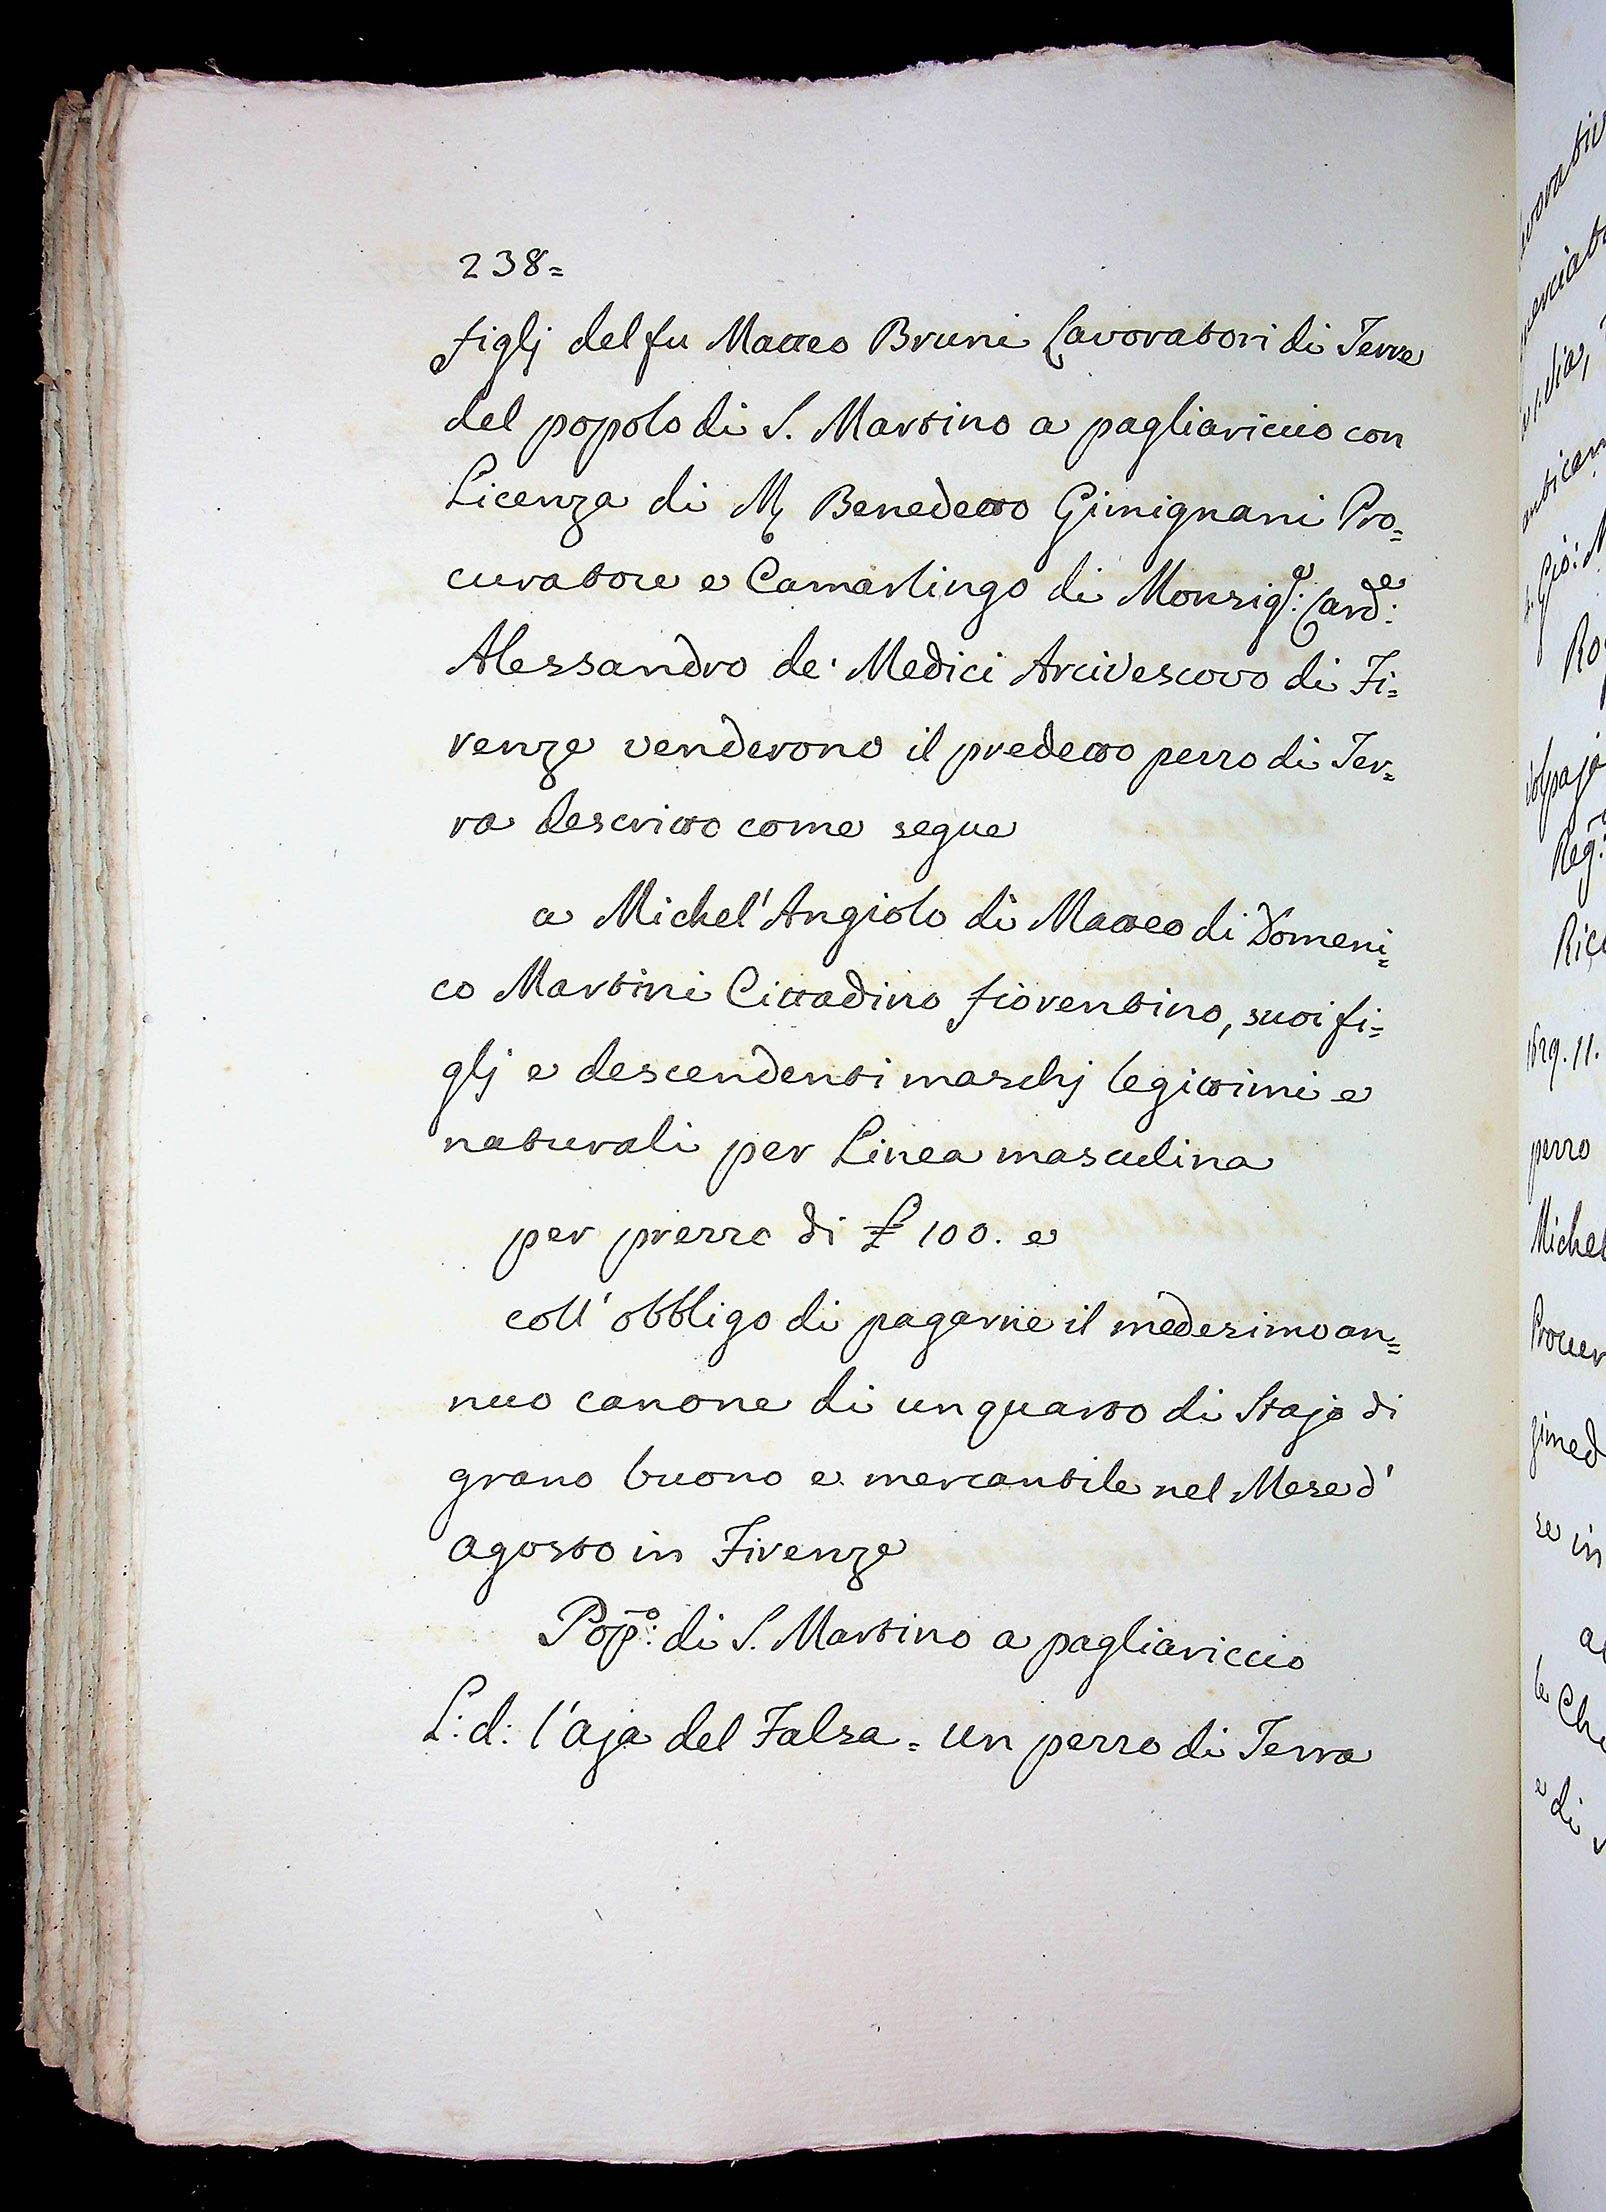 238=
figlj del fu Matteo Bruni Lavoratori di Terre
del popolo di S. Martino a pagliariccio con
Licenza di M. Benedetto Gimignani Pro=
curatore e Camarlingo di Monsig.e: Card.e:
Alessandro de' Medici Arcivescovo di Fi=
renze venderono il predetto pezzo di Ter=
ra descritto come segue
a Michel'Angiolo di Matteo di Domeni=
co Martini Cittadino fiorentino, suoi fi=
glj e descendenti maschj legittimi e
naturali per Linea masculina
per prezzo di £ 100. e
coll' obbligo di pagarne il medesimo an=
nuo canone di un quarto di Stajo di
grano buono e mercantile nel Mese d'
agosto in Firenze
Pop.o: di S. Martino a pagliariccio
L: d: l'aja del Falsa = un pezzo di Terra
1629. 11.
pezzo
Michel